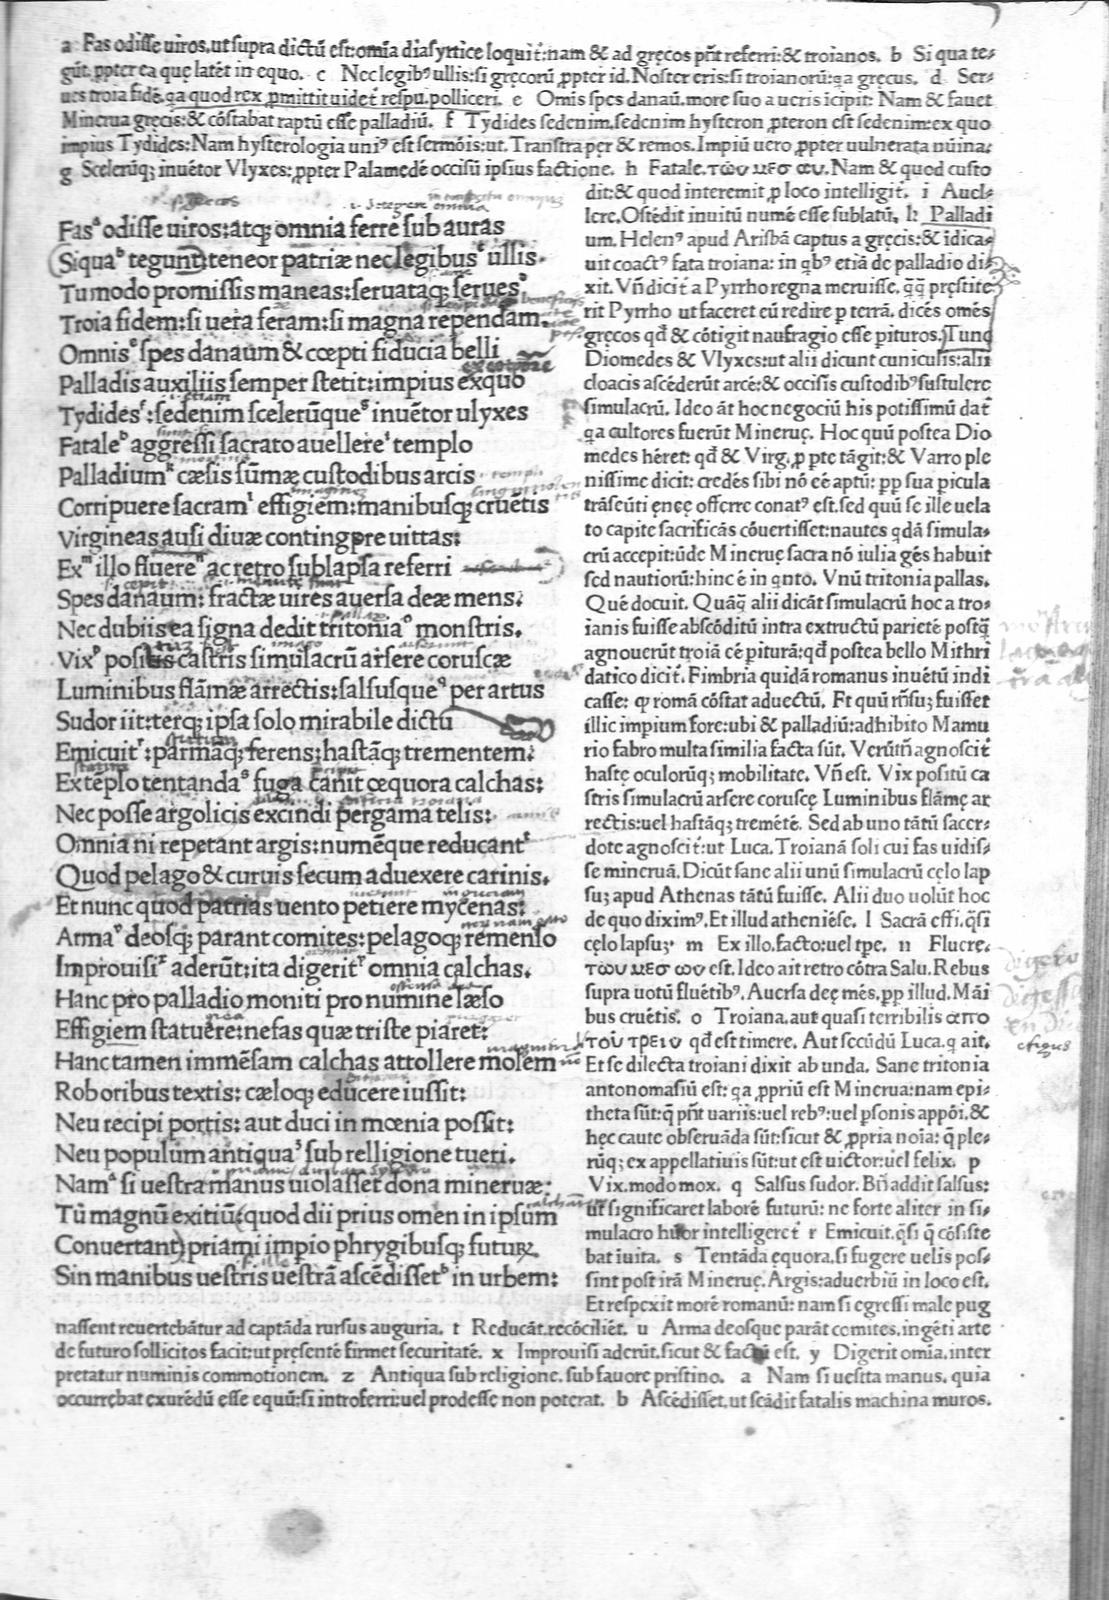 a Fas odisse uiros.ut supra dictū est:omīa diasyrtice loquit̄:nam & ad gręcos pn̄t referri:& troianos. b Si qua te-
gūt.ꝓpterea quę latēt in equo. c Nec legibꝰ ullis:si gręcorū ꝓpter id.Noster eris:si troianorū:qa gręcus. d Ser-
ues troia fidē.qa quod rex ꝓmittit uidet̄ respu.polliceri. e Omīs spes danaū.more suo a ueris īcipit: Nam & fauet
Minerua gręcis:& cōstabat raptū esse palladiū. f Tydides sedenim.sedenim hysteron ꝓteron est sedenim:ex quo
impius Tydides:Nam hysterologia uniꝰ est sermōis:ut.Trāstra per & remos.Impiū uero ꝓpter uulnerata nūina:
g Scelerūqꝫ inuētor Vlyxes:ꝓpter Palamedē occisū ipsius factione. h Fatale.τῶν μέσων.Nam & quod custo
dit:& quod interemit ꝓ loco intelligit. i Auel-
lere.Ostēdit inuitū numē esse sublatū. k Palladi
um. Helenꝰ apud Arisbā captus a gręcis:& īdica-
uit coactꝰ fata troiana: in qbꝰ etiā de palladio di-
xit. Vn̄ dicit̄ a Pyrrho regna meruisse. q̄q̄ pręstite
rit Pyrrho ut faceret eū redire p terrā. dicēs omēs
gręcos qd̄ & cōtigit naufragio esse pituros. Tunc
Diomedes & Vlyxes:ut alii dicunt cuniculis:alii
cloacis ascēderūt arcē:& occisis custodibꝰ sustulere
simulacrū. Ideo āt hoc negociū his potissimū dat̄
qa cultores fuerūt Mineruę. Hoc quū postea Dio
medes hēret: qd̄ & Virg. ꝓ pte tāgit:& Varro ple
nissime dicit: credēs sibi nō eē aptū: ꝓp sua picula
trāseūti ęneę offerre conatꝰ est.sed quū se ille uela
to capite sacrificās cōuertisset:nautes qdā simula-
crū accepit:ūde Mineruę sacra nō iulia gēs habuit
sed nautiorū:hinc ē in qnto. Vnū tritonia pallas.
Quē docuit. Quāq̄ alii dicāt simulacrū hoc a tro-
ianis fuisse abscōditū intra extructū parietē postq̄
agnouerūt troiā eē piturā:qd̄ postea bello Mithri
datico dicit̄. Fimbria quidā romanus inuētū indi
casse: qd romā cōstat aduectū. Et quū rn̄suꝫ fuisset
illic impium fore:ubi & palladiū:adhibito Mamu
rio fabro multa similia facta sūt. Verūtn̄ agnoscit̄
hastę oculorūqꝫ mobilitate. Vn̄ est. Vix positū ca
stris simulacrū arsere coruscę Luminibus flāmę ar
rectis:uel hastāqꝫ tremētē. Sed ab uno tātū sacer-
dote agnoscit̄:ut Luca. Troianā soli cui fas uidis-
se mineruā. Dicūt sane alii unū simulacrū cęlo lap
suꝫ apud Athenas tātū fuisse. Alii duo uolūt hoc
de quo diximꝰ.Et illud atheniēse. l Sacrā effi.q̄si
cęlo lapsuꝫ. m Ex illo.facto:uel tpe. n Fluere.
τῶν μέσων est. Ideo ait retro cōtra Salu. Rebus
supra uotū fluētibꝰ. Auersa deę mēs.ꝓp illud. Māi
bus cruētis. o Troiana.aut quasi terribilis ἀπο
τοῦ τρεῖν qd̄ est timere. Aut secūdū Luca.q ait.
Et se dilecta troiani dixit ab unda. Sane tritonia
antonomasiū est: qa ꝓpriū est Minerua: nam epi-
theta sūt:q̄ pn̄t uariis:uel rebꝰ:uel psonis appōi.&
hęc caute obseruāda sūt:sicut & ꝓpria noīa: q̄ ple-
rūqꝫ ex appellatiuis sūt:ut est uictor:uel felix. p
Vix.modo mox. q Salsus sudor. Bn̄ addit salsus:
ut significaret laborē futurū: ne forte aliter in si-
mulacro huor intelligeret̄ r Emicuit.q̄si q̄ cōsiste
bat iuita. s Tentāda equora.si fugere uelis pos-
sint post irā Mineruę.Argis:aduerbiū in loco est.
Et respexit morē romanū: nam si egressi male pug
nassent reuertebātur ad captāda rursus auguria. t Reducāt.recōciliēt. u Arma deosque parāt comites.ingēti arte
de futuro sollicitos facit:ut pręsentē firmet securitatē. x Improuisi aderūt.sicut & factū est. y Digerit omīa.inter
pretatur numinis commotionem. z Antiqua sub religione.sub fauore pristino. a Nam si uestra manus. quia
occurrebat exurēdū esse equū:si introferri:uel prodesse non poterat. b Ascēdisset.ut scādit fatalis machina muros.
Fasᵃ odisse uiros:atqꝫ omnia ferre sub auras
Siquaᵇ tegunt:teneor patriæ nec legibusᶜ ullis.
Tu modo promissis maneas:seruataqꝫ seruesᵈ
Troia fidem:si uera feram:si magna rependam.
Omnisᵉ spes danaum & cœpti fiducia belli
Palladis auxiliis semper stetit:impius exquo
Tydidesᶠ:sedenim scelerūqueᵍ inuētor ulyxes
Fataleʰ aggressi sacrato auellereⁱ templo
Palladiumᵏ cæsis sūmæ custodibus arcis
Corripuere sacramˡ effigiem:manibusqꝫ cruētis
Virgineas ausi diuæ contingere uittas:
Exᵐ illo fluereⁿ ac retro sublapsa referri
Spes danaum: fractæ uires auersa deæ mens:
Nec dubiis ea signa dedit tritoniaᵒ monstris.
Vixᵖ positis castris simulacrū arsere coruscæ
Luminibus flāmæ arrectis:salsusque per artus
Sudor iit:terqꝫ ipsa solo mirabile dictū
Emicuitʳ:parmāqꝫ ferens:hastāqꝫ trementem:
Extēplo tentandaˢ fuga canit œquora calchas:
Nec posse argolicis excindi pergama telis:
Omnia ni repetant argis:numēque reducantᵗ
Quod pelago & curuis secum aduexere carinis.
Et nunc quod patrias uento petiere mycenas:
Armaᵘ deosqꝫ parant comites:pelagoqꝫ remenso
Improuisiˣ aderūt:ita digeritʸ omnia calchas.
Hanc pro palladio moniti pro numine læso
Effigiem statuēre:nefas quæ triste piaret:
Hanc tamen immēsam calchas attollere molem
Roboribus textis: cæloqꝫ educere iussit:
Neu recipi portis: aut duci in mœnia possit:
Neu populum antiquaᶻ sub relligione tueri.
Namᵃ si uestra manus uiolasset dona mineruæ:
Tū magnū exitiū(quod dii prius omen in ipsum
Conuertant)priami impio phrygibusqꝫ futuꝝ
Sin manibus uestris uestrā ascēdissetᵇ in urbem: